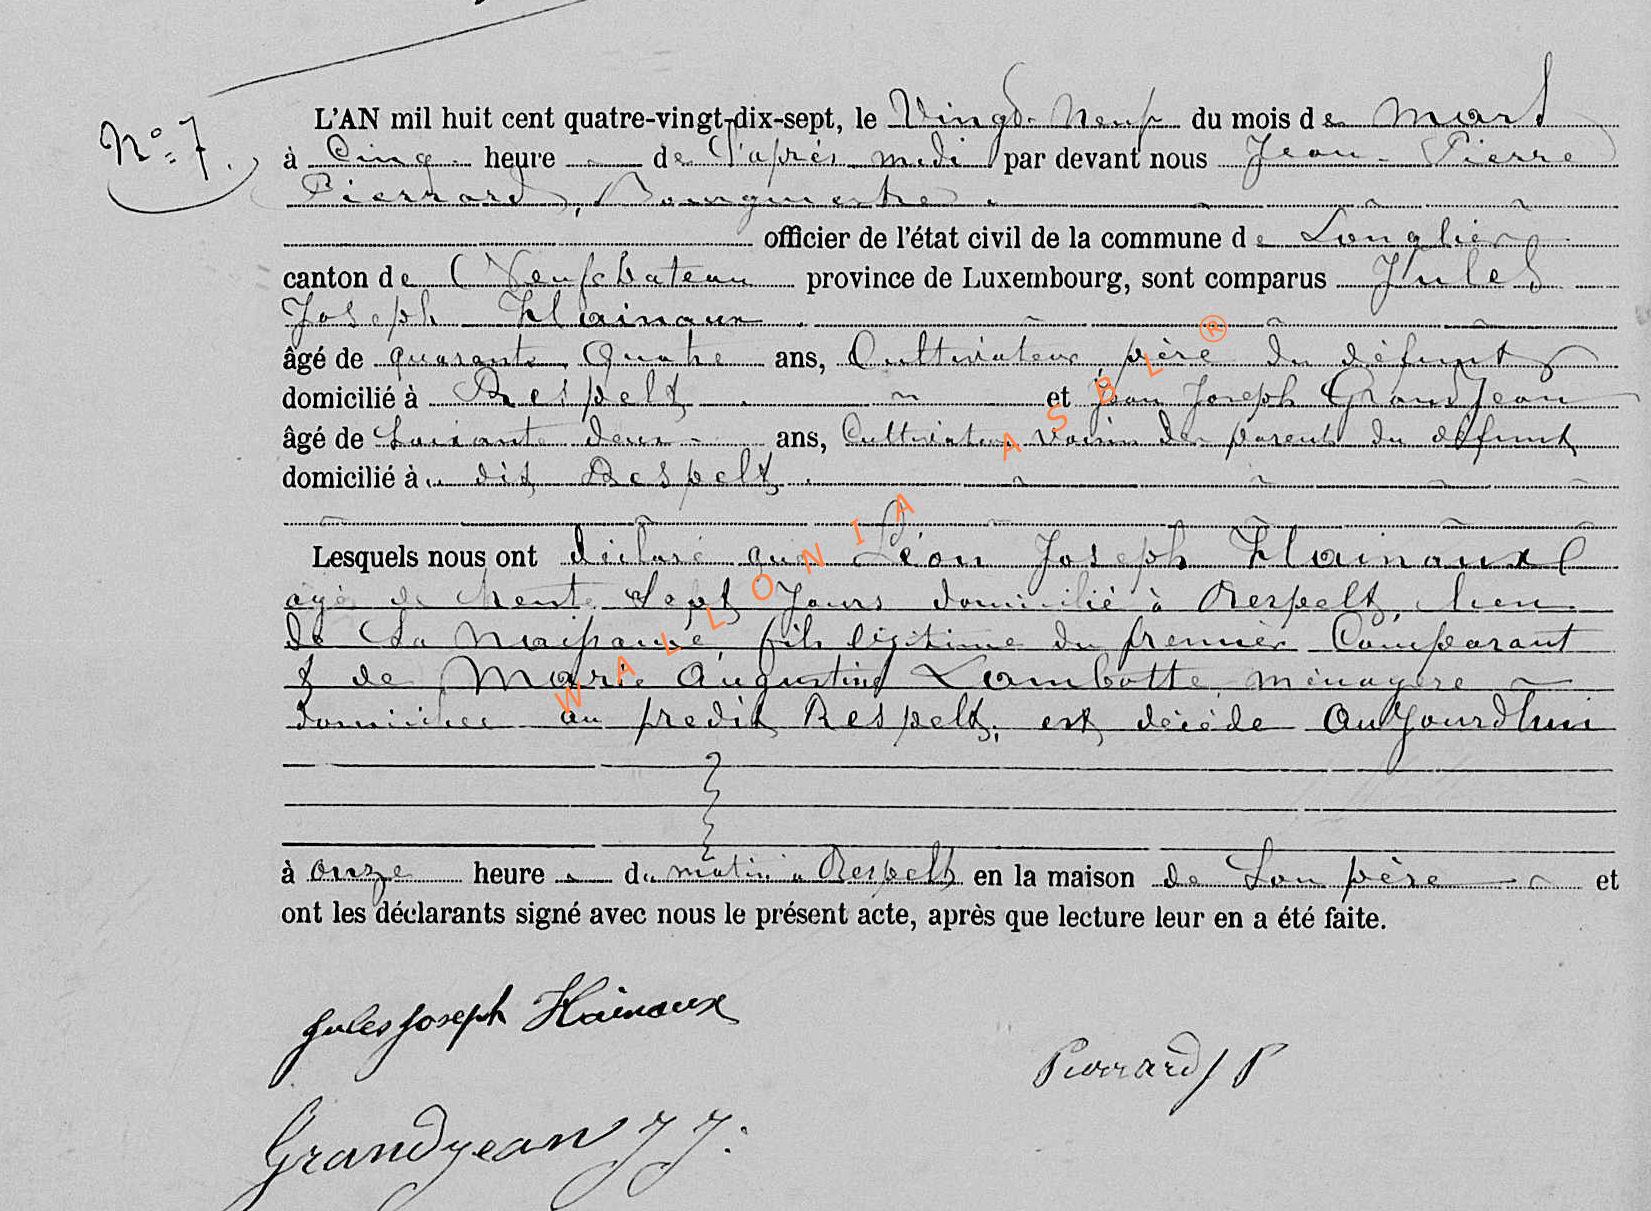 N° 7.
L'AN mil huit cent quatre-vingt-dix-sept, le Vingt Neuf du mois de Mars
à Cinq heure de l'après midi par devant nous Jean Pierre
Pierrard, Bourgmestre
officier de l'état civil de la commune de Longlier
canton de Neufchateau province de Luxembourg, sont comparus Jules
Joseph Hainaux
âgé de quarante quatre ans, Cultivateur, père du défunt
domicilié à Respelt et Jean Joseph GrandJean
âgé de Soixante deux ans, Cultivateur voisin des parents du défunt
domicilié à u dit Respelt
Lesquels nous ont déclaré que Léon Joseph Hainaux
agé de trente Sept Jours domicilié à Respelt, lieu
de Sa Naissance, fils légitime du premier Comparant
& de Marie Augustine Lambotte ménagère
domiciliée au predit Respelt, est décédé AuJourdhui
à onze heure du matin à Respelt en la maison de Son père et
ont les déclarants signé avec nous le présent acte, après que lecture leur en a été faite.
Jules Joseph Hainaux
Pierrard J P
Grandjean J J.
WALLONIA ASBL ®